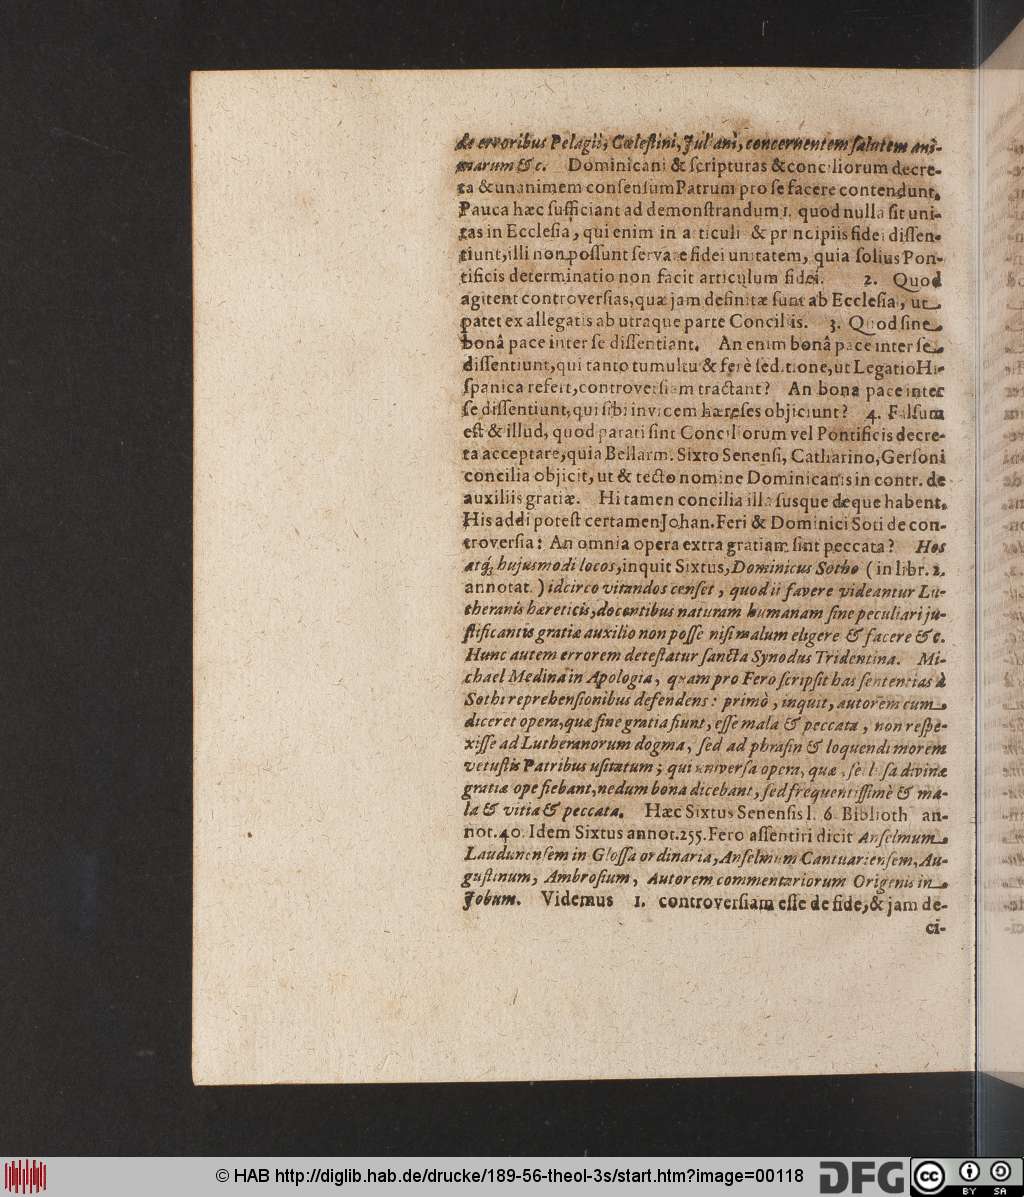 de erroribus Pelagii, Cœleſtini, Juliani, concernentem ſalutem ani-
marum &c. Dominicani & ſcripturas & conciliorum decre-
ta & unanimem conſenſum Patrum pro ſe facere contendunt.
Pauca hæc ſufficiant ad demonſtrandum 1. quod nulla ſit uni-
tas in Eccleſia, qui enim in articulis & principiis fidei diſſen-
tiunt, illi non poſſunt ſervare fidei unitatem, quia ſolius Pon-
tificis determinatio non facit articulum fidei. 2. Quod
agitent controverſias, quæ jam definitæ ſunt ab Eccleſia, ut
patet ex allegatis ab utraque parte Conciliis. 3. Quod ſine
bonâ pace inter ſe diſſentiant. An enim bonâ pace inter ſe
diſſentiunt, qui tanto tumultu & ferè ſeditione, ut Legatio Hi-
ſpanica refert, controverſiam tractant? An bona pace inter
ſe diſſentiunt, qui ſibi invicem hæreſes objiciunt? 4. Falſum
eſt & illud, quod parati ſint Conciliorum vel Pontificis decre-
ta acceptare, quia Bellarm. Sixto Senenſi, Catharino, Gerſoni
concilia objicit, ut & tecto nomine Dominicanis in contr. de
auxiliis gratiæ. Hi tamen concilia illa ſusque deque habent.
His addi poteſt certamen Johan. Feri & Dominici Soti de con-
troverſia: An omnia opera extra gratiam ſint peccata? Hos
atq; hujusmodi locos, inquit Sixtus, Dominicus Sotho (in libr. 2.
annotat.) idcirco vitandos cenſet, quod ii favere videantur Lu-
theranis hæreticis, docentibus naturam humanam ſine peculiari ju-
ſtificantis gratiæ auxilio non poſſe niſi malum eligere & facere &c.
Hunc autem errorem deteſtatur ſancta Synodus Tridentina. Mi-
chael Medina in Apologia, quam pro Fero ſcripſit has ſententias à
Sothi reprehenſionibus defendens: primò, inquit, autorem cum
diceret opera, quæ ſine gratia fiunt, eſſe mala & peccata, non reſpe-
xiſſe ad Lutheranorum dogma, ſed ad phraſin & loquendi morem
vetuſtis Patribus uſitatum; qui univerſa opera, quæ, ſecluſa divinæ
gratiæ ope fiebant, nedum bona dicebant, ſed frequentiſſimè & ma-
la & vitia & peccata. Hæc Sixtus Senenſis l. 6. Biblioth. an-
not. 40. Idem Sixtus annot. 255. Fero aſſentiri dicit Anſelmum
Laudunenſem in Gloſſa ordinaria, Anſelmum Cantuarienſem, Au-
guſtinum, Ambroſium, Autorem commentariorum Origenis in
Jobum. Videmus 1. controverſiam eſſe de fide, & jam de-
ci-
© HAB http://diglib.hab.de/drucke/189-56-theol-3s/start.htm?image=00118
DFG
cc BY SA